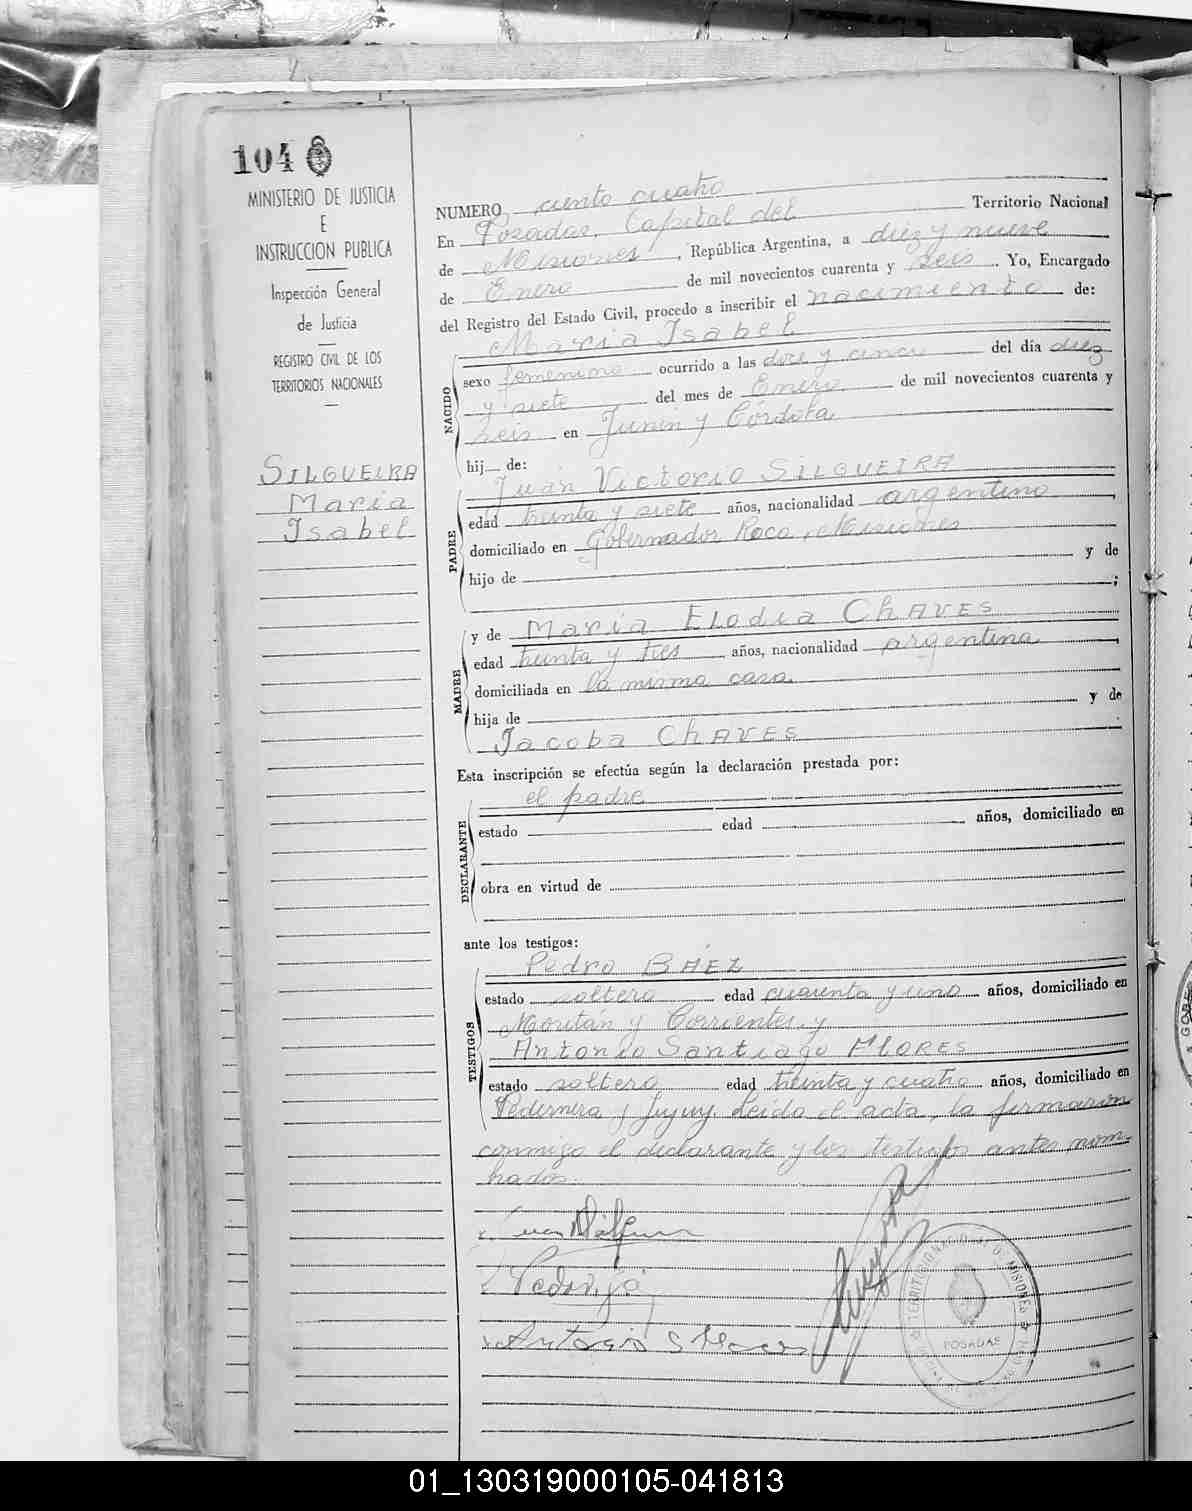 104
MINISTERIO DE JUSTICIA
E
INSTRUCCION PUBLICA
Inspección General
de Justicia
REGISTRO CIVIL DE LOS
TERRITORIOS NACIONALES
SILGUEIRA
Maria
Isabel
NUMERO ciento cuatro
En Posadas, Capital del Territorio Nacional
de Misiones, República Argentina, a diez y nueve
de Enero de mil novecientos cuarenta y seis. Yo, Encargado
del Registro del Estado Civil, procedo a inscribir el nacimiento de:
NACIDO
Maria Isabel
sexo femenino ocurrido a las doce y cinco del día diez
y siete del mes de Enero de mil novecientos cuarenta y
seis en Junin y Córdoba
hij de:
PADRE
Juan Victorio SILGUEIRA
edad treinta y siete años, nacionalidad argentino,
domiciliado en Gobernador Roca, Misiones
hijo de y de
;
MADRE
y de Maria Elodia CHAVES
edad treinta y tres años, nacionalidad argentina,
domiciliada en la misma casa
hija de y de
Jacoba CHAVES
Esta inscripción se efectúa según la declaración prestada por:
DECLARANTE
el padre
estado edad años, domiciliado en
obra en virtud de
ante los testigos:
TESTIGOS
Pedro BAEZ
estado soltero edad cuarenta y uno años, domiciliado en
y Corrientes, y
Antonio Santiago FLORES
estado soltero edad treinta y cuatro años, domiciliado en
Pedernera y Jujuy. Leida el acta, la firmaron
conmigo el declarante y los testigos antes nom-
brados.
Antonio S Flores
TERRITORIO NACIONAL DE MISIONES
POSADAS
01_130319000105-041813